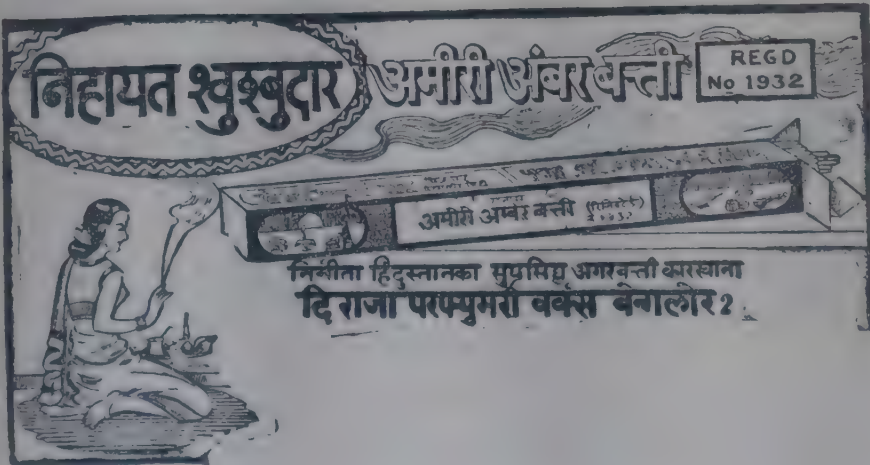 निहायत खुश्बुदार
अमीरी अंबर बत्ती
REGD
No 1932
अमीरी अम्बर बत्ती
निर्माता हिंदुस्तानका सुप्रसिद्ध अगरबत्ती कारखाना
दि राजा परफ्युमरी वर्कस बेंगलोर २